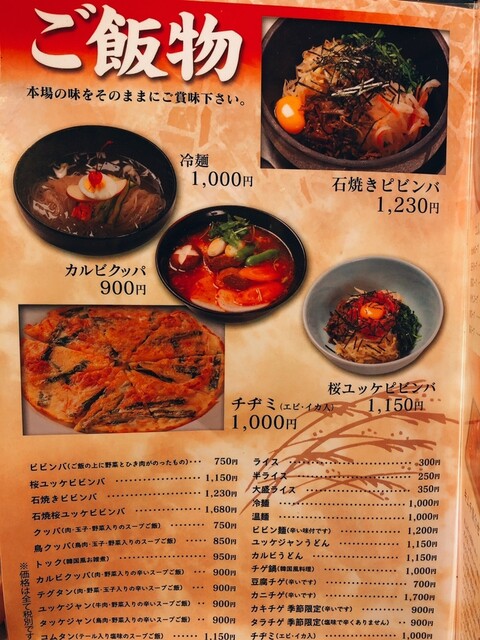 ご飯物
本場の味をそのままにご賞味下さい。
冷麺
1,000円
石焼きピビンバ
1,230円
カルビクッパ
900円
桜ユッケピビンバ
1,150円
チヂミ(エビ・イカ入)
1,000円
ピビンバ(ご飯の上に野菜とひき肉がのったもの)… 750円
桜ユッケピビンバ 1,150円
石焼きピビンバ 1,230円
石焼桜ユッケピビンバ 1,680円
クッパ(肉・玉子・野菜入りのスープご飯) 750円
鳥クッパ(鳥肉・玉子・野菜入りのスープご飯) 850円
トック(韓国風お雑煮) 950円
カルビクッパ(肉・野菜入りの辛いスープご飯) 900円
チグタン(肉・玉子・野菜入りの辛いスープご飯) 900円
ユッケジャン(牛肉・野菜入りの辛いスープご飯) 900円
タッケジャン(鳥肉・野菜入りの辛いスープご飯) 900円
コムタン(テール入り塩味のスープご飯) 1,150円
※価格は全て税別です。
ライス 300円
半ライス 250円
大盛ライス 350円
冷麺 1,000円
温麺 1,000円
ピビン麺(辛い味付です) 1,200円
ユッケジャンうどん 1,150円
カルビうどん 1,150円
チゲ鍋(韓国風料理) 1,000円
豆腐チゲ(辛いです) 700円
カニチゲ(辛いです) 1,700円
カキチゲ 季節限定(辛いです) 1,000円
タラチゲ 季節限定(塩味で辛くありません) 1,000円
チヂミ(エビ・イカ入) 1,000円